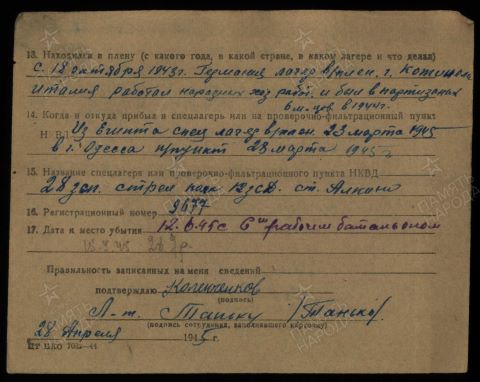 13. Находился в плену (с какого года, в какой стране, в каком лагере и что делал)
с 18 октября 1943 г. Германия лагер в/плен. г.
Италия работал разных хоз работ. и был в партизанах
6 м-цов в 1944 г.
14. Когда и откуда прибыл в спецлагерь или на проверочно-фильтрационный пункт
НКВД Из Египта спец лагер в/плен. 23 марта 1945
в г. Одесса п/пункт 23 марта 1945 г.
15. Название спецлагеря или проверочно-фильтрационного пункта НКВД
28 зап. стрел полк ЗСД. ст. Алкино
16. Регистрационный номер 9677
17. Дата и место убытия 12.6.45 г. рабочим батальоном
Правильность записанных на меня сведений
подтверждаю
(подпись)
Л-т. Танску /Танску/
(подпись сотрудника, заполнявшего карточку)
28 Апреля 1945 г.
ПАМЯТЬ НАРОДА